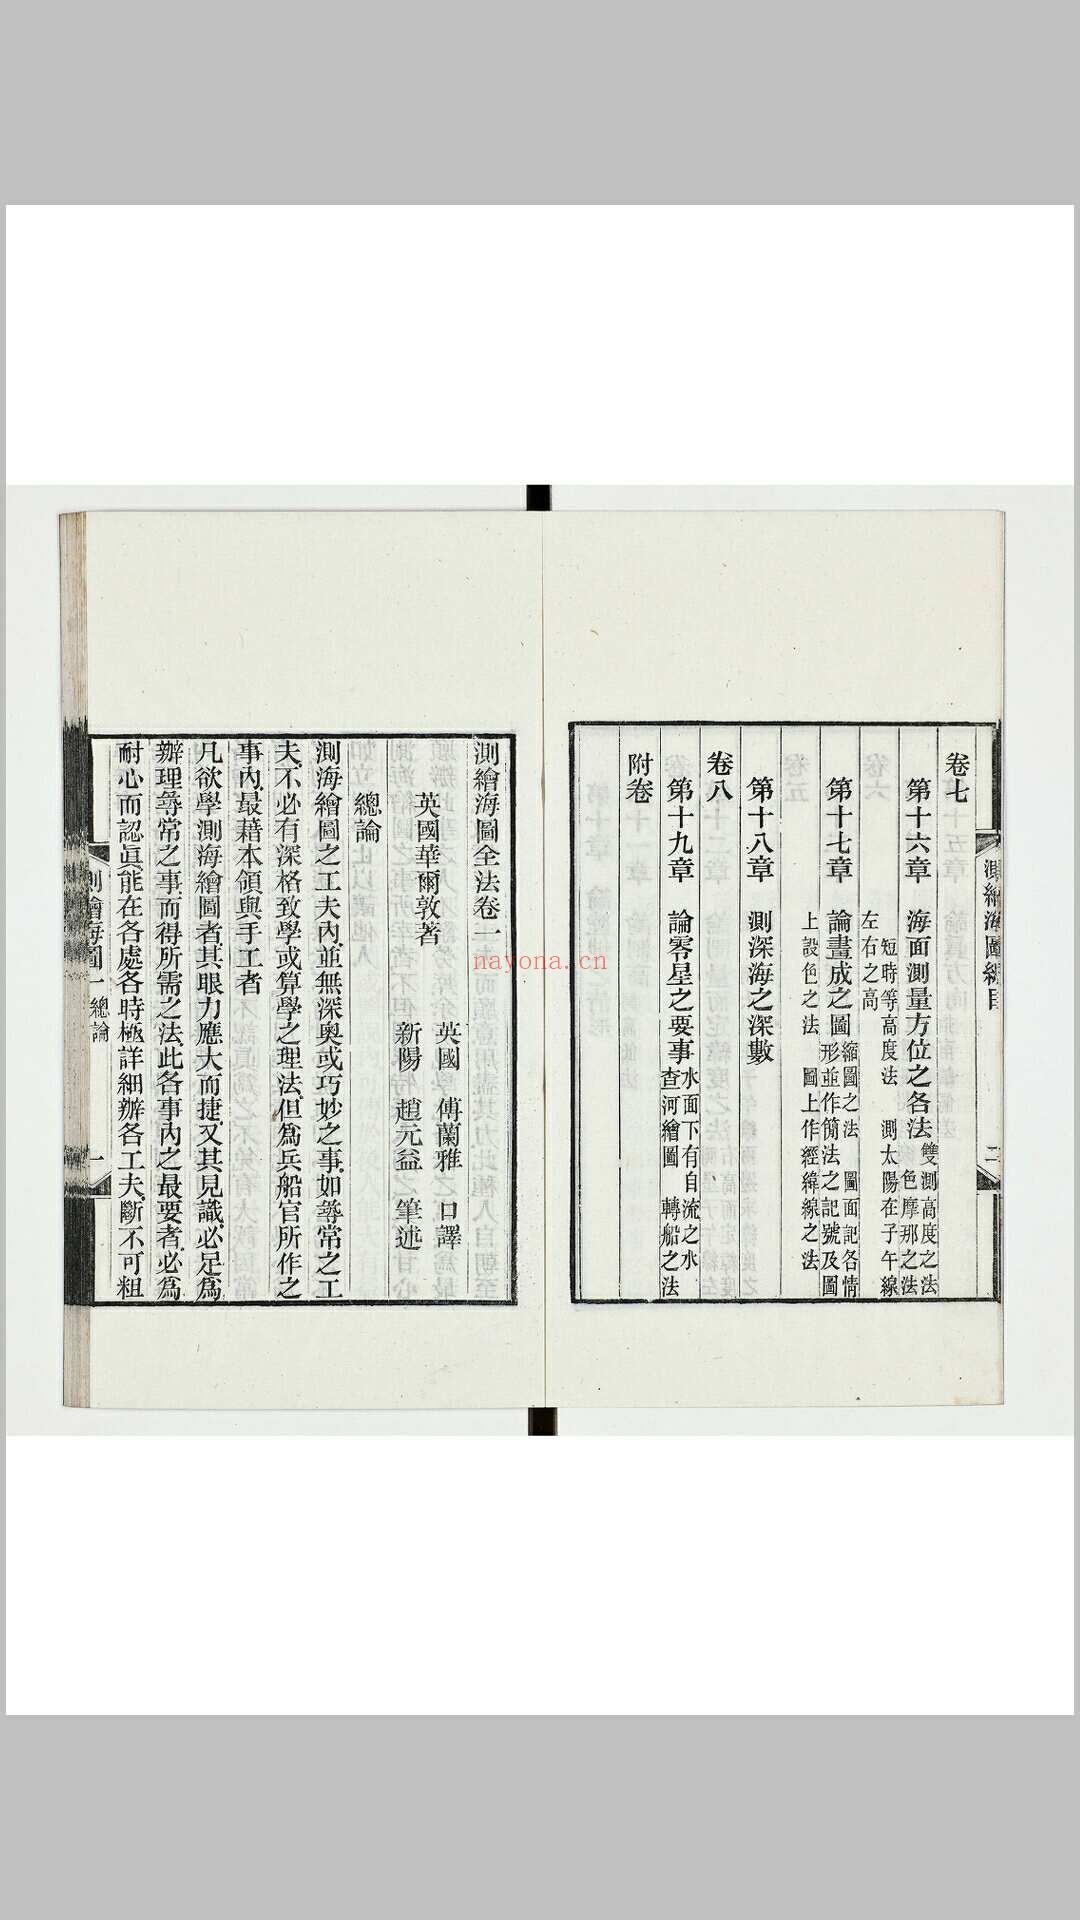 測繪海圖總目
二
卷七
第十六章　海面測量方位之各法　雙測高度之法　色摩那之法
短時等高度法　測太陽在子午線
左右之高
第十七章　論畫成之圖　縮圖之法　圖面記各情
形並作簡法之記號及圖
上設色之法　圖上作經緯線之法
第十八章　測深海之深數
卷八
第十九章　論零星之要事　水面下有自流之水
查河繪圖　轉船之法
附卷
測繪海圖全法卷一
英國華爾敦著
英國　傅蘭雅　口譯
新陽　趙元益　筆述
總論
測海繪圖之工夫內、並無深奧或巧妙之事、如尋常之工
夫、不必有深格致學或算學之理法、但爲兵船官所作之
事內、最藉本領與手工者
凡欲學測海繪圖者、其眼力應大而捷、又其見識必足爲
辦理尋常之事、而得所需之法、此各事內之最要者、必爲
耐心而認眞、能在各處各時極詳細辦各工夫、斷不可粗
測繪海圖一
總論
一
nayona.cn